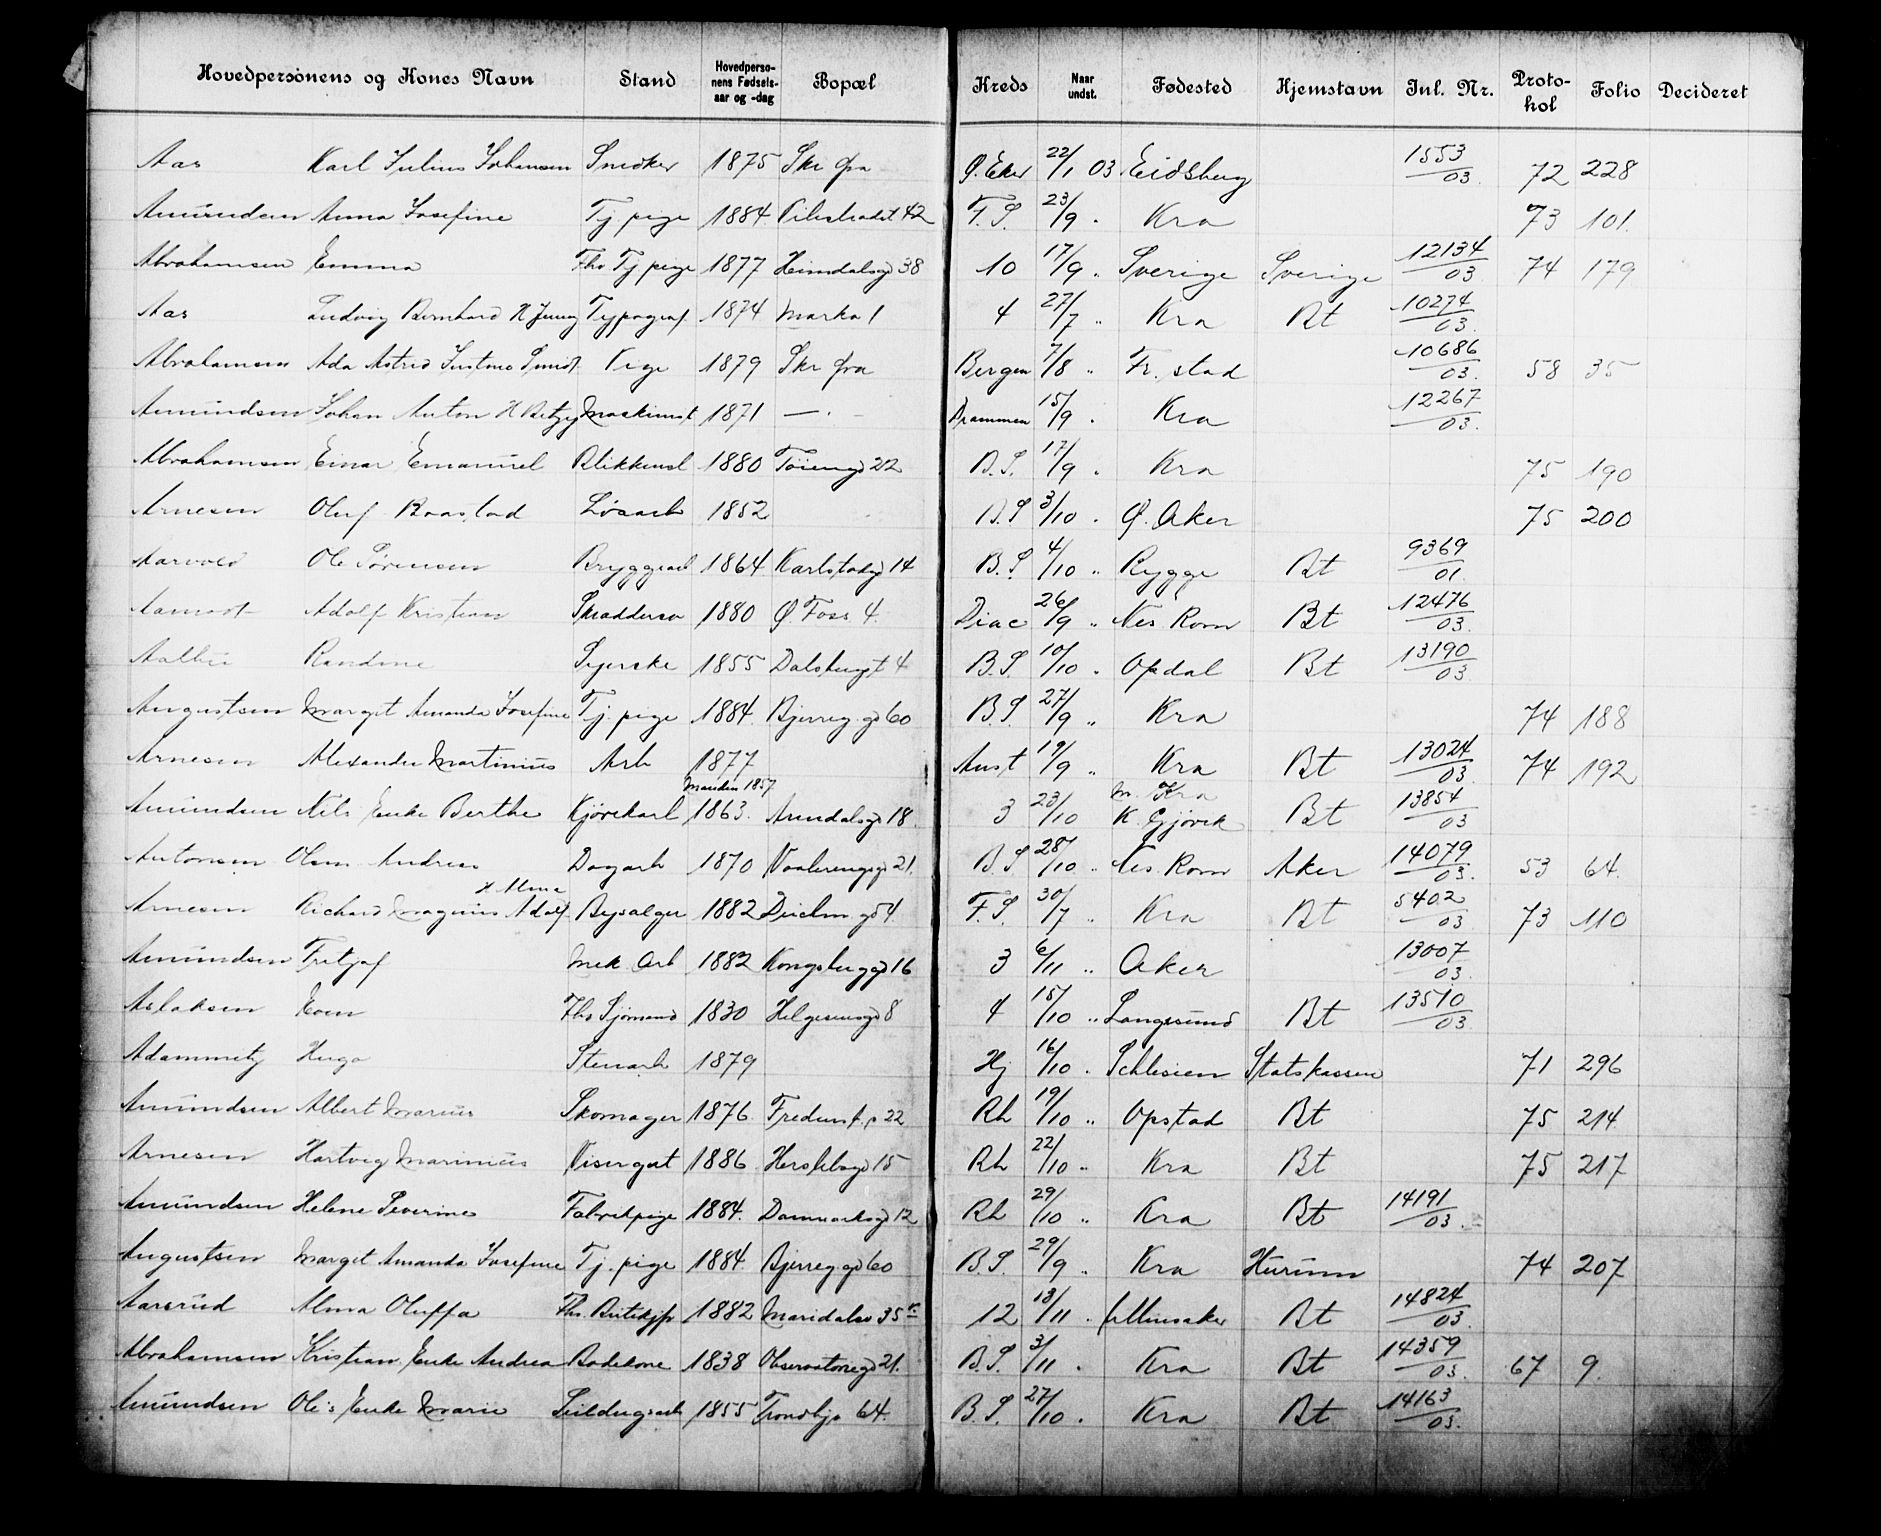 Hovedpersonens og Kones Navn Stand Hovedpersonens Fødselsaar og -dag Bopæl Kreds Naar undst. Fødested Hjemstavn Inl. Nr. Protokol Folio Decideret
Aas Karl Julius Johansen Snedker 1875 Skr fra Ø. Eker 22/1 03 Eidsberg 1553/03 72 228
Amundsen Anna Josefine Tj. pige 1884 Pilestrædet 42 F. S. 23/9 " Kra 73 101.
Abrahamsen Emma Fhv Tj pige 1877 Heimdalsgd 38 10 17/9 " Sverige Sverige 12134/03 74 179
Aas Ludvig Bernhard H Jenny Typograf 1874 Marka 1 4 27/7 " Kra Bt 10274/03
Abrahamsen Ada Astrid Justine Pige 1879 Skr fra Bergen 7/8 " Fr. stad 10686/03 58 35
Amundsen Johan Anton H Betzy Maskinist 1871 — " — Drammen 15/9 " Kra 12267/03
Abrahamsen Einar Emanuel Blikkensl 1880 Tøiengd 22 B. S. 17/9 " Kra 75 190
Arnesen Oluf Baastad Løsarb 1852 B. S 3/10 " Ø. Aker 75 200
Aarvold Ole Sørensen Bryggearb 1864 Karlstadgd 14 B. S. 4/10 " Rygge Bt 9369/01
Aamodt Adolf Kristian Skræddersv 1880 Ø. Foss 4. Diac 26/9 " Nes Rom Bt 12476/03
Randine Syerske 1855 Dalsbergst 4 B. S. 10/10 " Opdal Bt 13190/03
Augustsen Margit Amanda Josefine Tj. pige 1884. Bjerreg. gd 60 B. S 27/9 " Kra 74 188
Arnesen Alexander Martinius Arb 1877 Aust 19/9 " Kra Bt 13024/03 74 192
Amundsen Nils Enke Berthe Kjørekarl Manden 1857 1863. Arendalsgd 18. 3 23/10 M. Kra K. Gjøvik Bt 13854/03
Antonsen Olsen Andreas Dagarb 1870 Vaalerenggd 21. B. S 28/10 " Nes. Rom Aker 14079/03 53 64.
Arnesen Richard Magnus Adolf H Alma Bysælger 1882 Deichm. gd 4. F. S. 30/7 " Kra Bt 5402/03 73 110
Amundsen Fritjof Mek Arb 1882 Kongsberggd 16 3 6/11 " Aker 13007/03
Aslaksen Even Fhv Sjømand 1830 Helgesensgd 8 4 15/10 " Langesund Bt 13510/03
Adammetz Hugo Stenarb 1879 Hj 16/10 " Schlesien Statskassen 71 296
Amundsen Albert Marius Skomager 1876. Fredenst. p 22 Rh 19/10 " Opstad Bt 75 214
Arnesen Hartvig Marinius Visergut 1886 Herslebsgd 15 Rh 22/10 " Kra Bt 75 217
Amundsen Helene Severine Fabrikpige 1884. Danmarksgd 12 Rh 29/10 " Kra Bt 14191/03
Augustsen Margit Amanda Josefine Tj. pige 1884. Bjerreg. gd 60 B. S. 29/9 " Kra Hurum 74 207
Aasrud Alma Oluffa Fhv. Butikjfr 1882 Maridalsv 35 12 13/11 " Ullinsaker Bt 14824/03
Abrahamsen Kristian Enke Andrea Badekone 1838 Observatoriegd 21. B. S. 3/11 " Kra Bt 14359/03 67 9.
Amundsen Ole's Enke Marie Seildugsarb 1855 Trondhjs 64. B. S. 27/10 " Kra Bt 14163/03